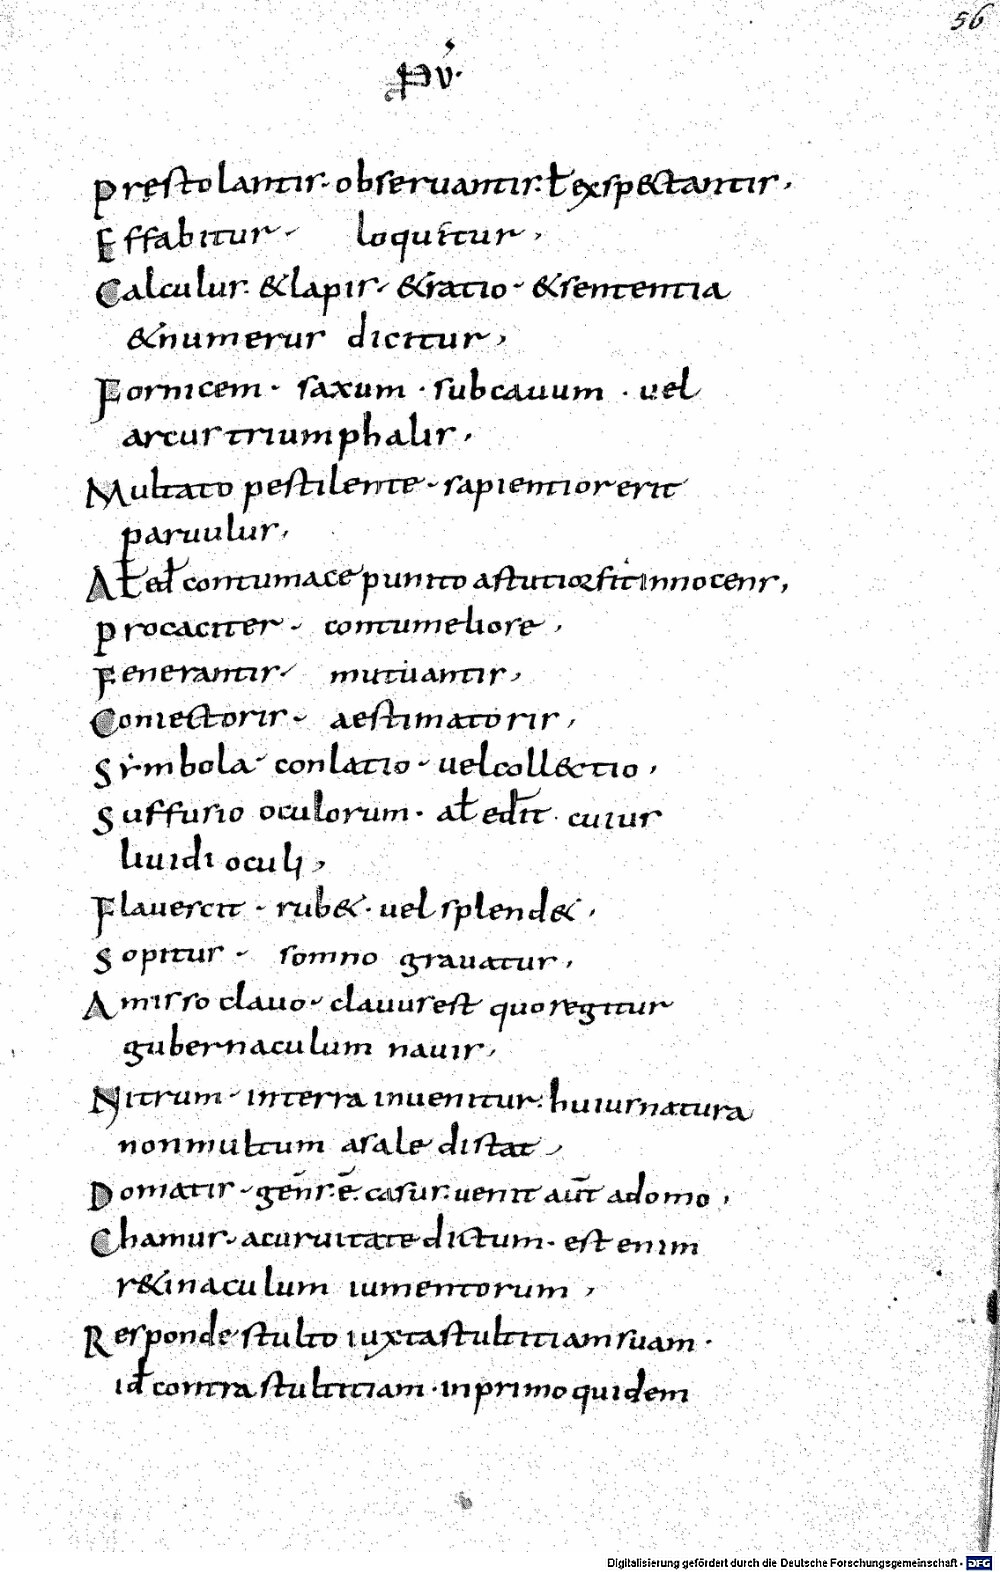 56
PṼ·
Pręstolantis· observantis· ł exspectantis,
Effabitur· loquitur,
Calculus· & lapis· & ratio· & sententia
& numerus dicitur,
Fornicem· saxum· subcauum· vel
arcus triumphalis,
Multato pestilente· sapientior erit
paruulus,
Ał eđ contumace punito astutior sit innocens,
Procaciter· contumeliose,
Fenerantis· mutuantis,
Coniectoris· aestimatoris,
Simbola· conlatio· vel coll&ctio,
Suffusio oculorum· ał eđit· cuius
liuidi oculi,
Flavescit· rub&· vel splend&,
Sopitur· somno gravatur,
Amisso clavo· clavus est quo regitur
gubernaculum navis,
Nitrum· in terra invenitur· huius natura
non multum a sale distat,
Domatis· geñs· ē· casus· venit aūt a domo,
Chamus· a curuitate dictum· est enim
r&inaculum iumentorum,
Responde stulto iuxta stultitiam suam·
iđ contra stultitiam· in primo quidem
Digitalisierung gefördert durch die Deutsche Forschungsgemeinschaft - DFG